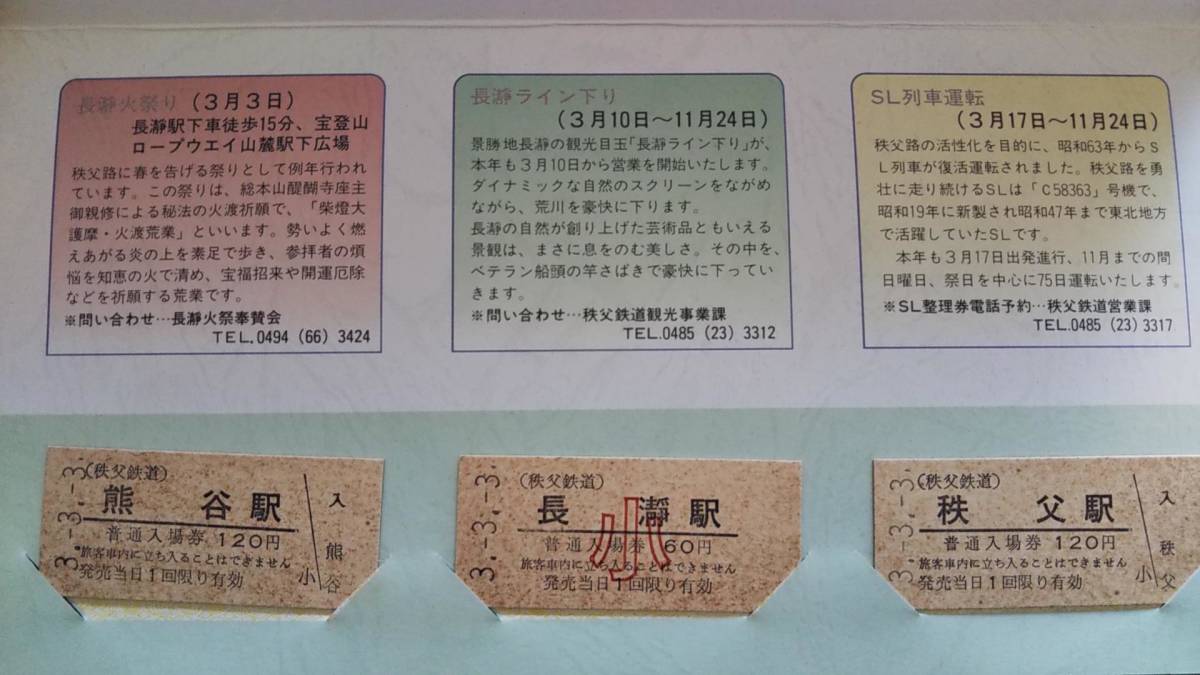 長瀞火祭り（3月3日）
長瀞駅下車徒歩15分、宝登山
ロープウエイ山麓駅下広場
秩父路に春を告げる祭りとして例年行われ
ています。この祭りは、総本山醍醐寺座主
御親修による秘法の火渡祈願で、「柴燈大
護摩・火渡荒業」といいます。勢いよく燃
えあがる炎の上を素足で歩き、参拝者の煩
悩を知恵の火で清め、宝福招来や開運厄除
などを祈願する荒業です。
※問い合わせ…長瀞火祭奉賛会
TEL.0494（66）3424
長瀞ライン下り
（3月10日〜11月24日）
景勝地長瀞の観光目玉「長瀞ライン下り」が、
本年も3月10日から営業を開始いたします。
ダイナミックな自然のスクリーンをながめ
ながら、荒川を豪快に下ります。
長瀞の自然が創り上げた芸術品ともいえる
景観は、まさに息をのむ美しさ。その中を、
ベテラン船頭の竿さばきで豪快に下ってい
きます。
※問い合わせ…秩父鉄道観光事業課
TEL.0485（23）3312
SL列車運転
（3月17日〜11月24日）
秩父路の活性化を目的に、昭和63年からS
L列車が復活運転されました。秩父路を勇
壮に走り続けるSLは「C58363」号機で、
昭和19年に新製され昭和47年まで東北地方
で活躍していたSLです。
本年も3月17日出発進行、11月までの間
日曜日、祭日を中心に75日運転いたします。
※SL整理券電話予約…秩父鉄道営業課
TEL.0485（23）3317
3.-3.-3.
（秩父鉄道）
熊谷駅
普通入場券 120円
旅客車内に立ち入ることはできません
発売当日1回限り有効
小
入
熊谷
3.-3.-3.
（秩父鉄道）
長瀞駅
小
普通入場券 60円
旅客車内に立ち入ることはできません
発売当日1回限り有効
3.-3.-3.
（秩父鉄道）
秩父駅
普通入場券 120円
旅客車内に立ち入ることはできません
発売当日1回限り有効
小
入
秩父